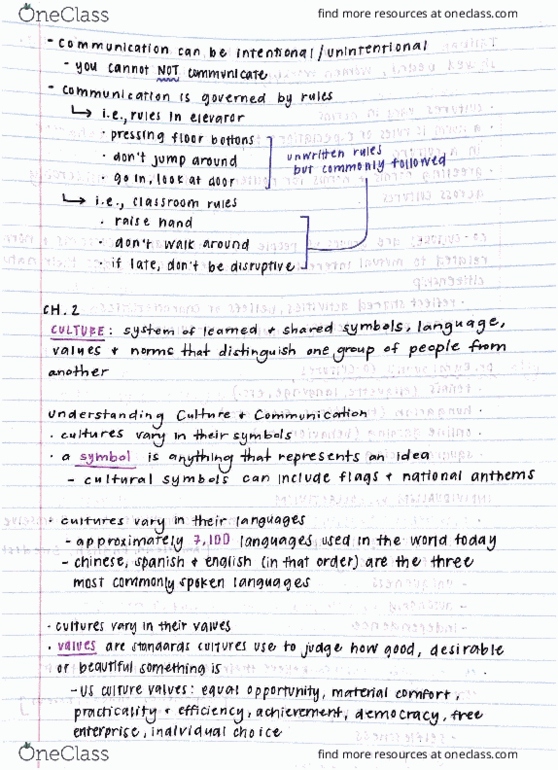 OneClass
find more resources at oneclass.com
- communication can be intentional/unintentional
- you cannot NOT communicate
- communication is governed by rules
↳ i.e., rules in elevator
· pressing floor bottons
· don't jump around
· go in, look at door
unwritten rules
but commonly followed
↳ i.e., classroom rules
· raise hand
· don't walk around
· if late, don't be disruptive
CH. 2
CULTURE: system of learned + shared symbols, language,
values + norms that distinguish one group of people from
another
understanding Culture + Communication
· cultures vary in their symbols
· a symbol is anything that represents an idea
- cultural symbols can include flags + national anthems
· cultures vary in their languages
- approximately 7,100 languages used in the world today
- chinese, spanish + english (in that order) are the three
most commonly spoken languages
· cultures vary in their values
· values are standards cultures use to judge how good, desirable
or beautiful something is
- US culture values: equal opportunity, material comfort,
practicality + efficiency, achievement, democracy, free
enterprise, individual choice
OneClass
find more resources at oneclass.com